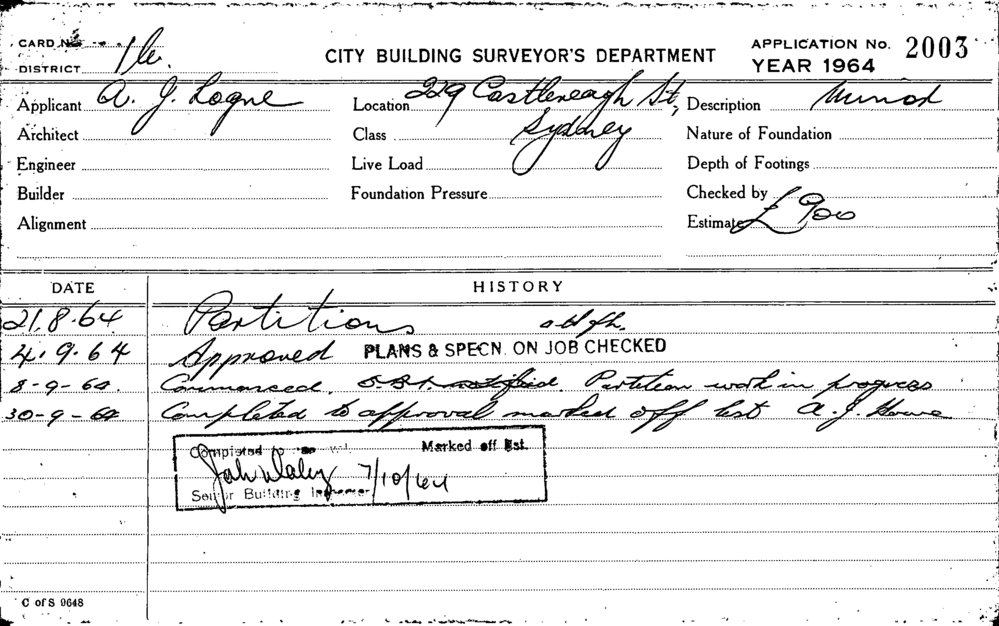 CARD No.
DISTRICT
CITY BUILDING SURVEYOR'S DEPARTMENT
APPLICATION No. 2003
YEAR 1964
Applicant A. J. Logue
Location 229 Castlereagh St,
Sydney
Description
Architect
Class
Nature of Foundation
Engineer
Live Load
Depth of Footings
Builder
Foundation Pressure
Checked by
Alignment
Estimate £900
DATE
HISTORY
21.8.64 Partitions
4.9.64 Approved PLANS & SPECN. ON JOB CHECKED
8-9-64. Commenced. Partition work in progress
30-9-64 Completed to approval marked off list A. J.
Completed to Marked off List.
7/10/64
Senior Building Inspector
C of S 9648